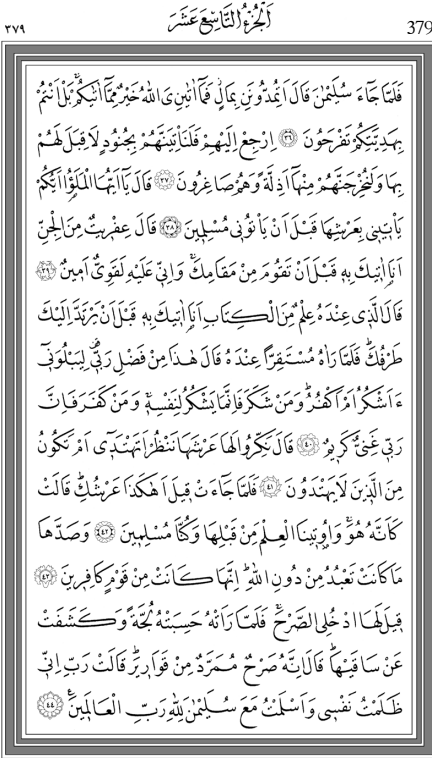 ٣٧٩ اَلْجُزْءُ التَّاسِعَ عَشَرَ 379
فَلَمَّا جَٓاءَ سُلَيْمٰنَ قَالَ اَتُمِدُّونَنِ بِمَالٍۘ فَمَٓا اٰتٰينِيَ اللّٰهُ خَيْرٌ مِمَّٓا اٰتٰيكُمْۚ بَلْ اَنْتُمْ
بِهَدِيَّتِكُمْ تَفْرَحُونَ ﴿٣٦﴾ اِرْجِعْ اِلَيْهِمْ فَلَنَأْتِيَنَّهُمْ بِجُنُودٍ لَا قِبَلَ لَهُمْ
بِهَا وَلَنُخْرِجَنَّهُمْ مِنْهَٓا اَذِلَّةً وَهُمْ صَاغِرُونَ ﴿٣٧﴾ قَالَ يَٓا اَيُّهَا الْمَلَؤُ۬ا اَيُّكُمْ
يَأْتِينِي بِعَرْشِهَا قَبْلَ اَنْ يَأْتُونِي مُسْلِمِينَ ﴿٣٨﴾ قَالَ عِفْرِيتٌ مِنَ الْجِنِّ
اَنَا۬ اٰتِيكَ بِهِ قَبْلَ اَنْ تَقُومَ مِنْ مَقَامِكَۚ وَاِنِّي عَلَيْهِ لَقَوِيٌّ اَمِينٌ ﴿٣٩﴾
قَالَ الَّذِي عِنْدَهُ عِلْمٌ مِنَ الْكِتَابِ اَنَا۬ اٰتِيكَ بِهِ قَبْلَ اَنْ يَرْتَدَّ اِلَيْكَ
طَرْفُكَۜ فَلَمَّا رَاٰهُ مُسْتَقِرًّا عِنْدَهُ قَالَ هٰذَا مِنْ فَضْلِ رَبِّي۠ لِيَبْلُوَنِٓي
ءَاَشْكُرُ اَمْ اَكْفُرُۜ وَمَنْ شَكَرَ فَاِنَّمَا يَشْكُرُ لِنَفْسِهِۚ وَمَنْ كَفَرَ فَاِنَّ
رَبِّي غَنِيٌّ كَرِيمٌ ﴿٤٠﴾ قَالَ نَكِّرُوا لَهَا عَرْشَهَا نَنْظُرْ اَتَهْتَدِٓي اَمْ تَكُونُ
مِنَ الَّذِينَ لَا يَهْتَدُونَ ﴿٤١﴾ فَلَمَّا جَٓاءَتْ قِيلَ اَهٰكَذَا عَرْشُكِۜ قَالَتْ
كَاَنَّهُ هُوَۚ وَاُو۫تِينَا الْعِلْمَ مِنْ قَبْلِهَا وَكُنَّا مُسْلِمِينَ ﴿٤٢﴾ وَصَدَّهَا
مَا كَانَتْ تَعْبُدُ مِنْ دُونِ اللّٰهِۜ اِنَّهَا كَانَتْ مِنْ قَوْمٍ كَافِرِينَ ﴿٤٣﴾
قِيلَ لَهَا ادْخُلِي الصَّرْحَۚ فَلَمَّا رَاَتْهُ حَسِبَتْهُ لُجَّةً وَكَشَفَتْ
عَنْ سَاقَيْهَاۜ قَالَ اِنَّهُ صَرْحٌ مُمَرَّدٌ مِنْ قَوَارِيرَۜ قَالَتْ رَبِّ اِنِّي
ظَلَمْتُ نَفْسِي وَاَسْلَمْتُ مَعَ سُلَيْمٰنَ لِلّٰهِ رَبِّ الْعَالَمِينَ۟ ﴿٤٤﴾